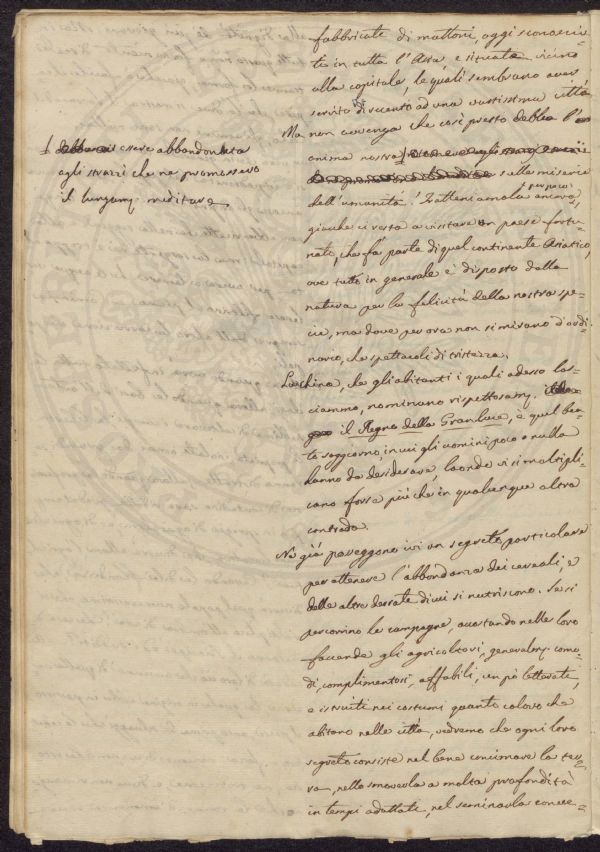 fabbricate di mattoni, oggi sconosciu-
te in tutta l'Asia, e situata vicino
alla capitale, le quali sembrano aver
servito di recinto ad una vastissima città
Ma non avvenga che così presto debba l'
anima nostra
sulle miserie
dell'umanità! Tratteniamola per poco ancora,
giacchè ci resta a visitare un paese fortu-
nato, che fa parte di quel continente Asiatico,
ove tutto in generale è disposto dalla
natura per la felicità della nostra spe-
cie, ma dove per ora non si mirano d'ordi-
nario, che spettacoli di tristezza.
La China, che gli abitanti i quali adesso las-
ciammo, nominano rispettosamᵉ.
il Regno della Gran luce, è quel bea-
to soggiorno, in cui gli uomini poco o nulla
hanno da desiderare, laonde vi si moltipli-
cano forse più che in qualunque altra
contrada.
Nè già posseggono ivi un segreto particolare
per ottenere l'abbondanza dei cereali, e
delle altre derrate di cui si nutriscono. Se si
percorrino le campagne, accostando nelle loro
faccende gli agricoltori, generalmᵉ. como-
di, complimentosi, affabili, un pò letterati,
e istruiti nei costumi quanto coloro che
abitano nelle città, vedremo che ogni loro
segreto consiste nel bene concimare la ter-
ra, nello smoverla a molta profondità
in tempi adattati, nel seminarla conve-
essere abbandonata
agli strazi che ne promossero
il lungamᵉ. meditare